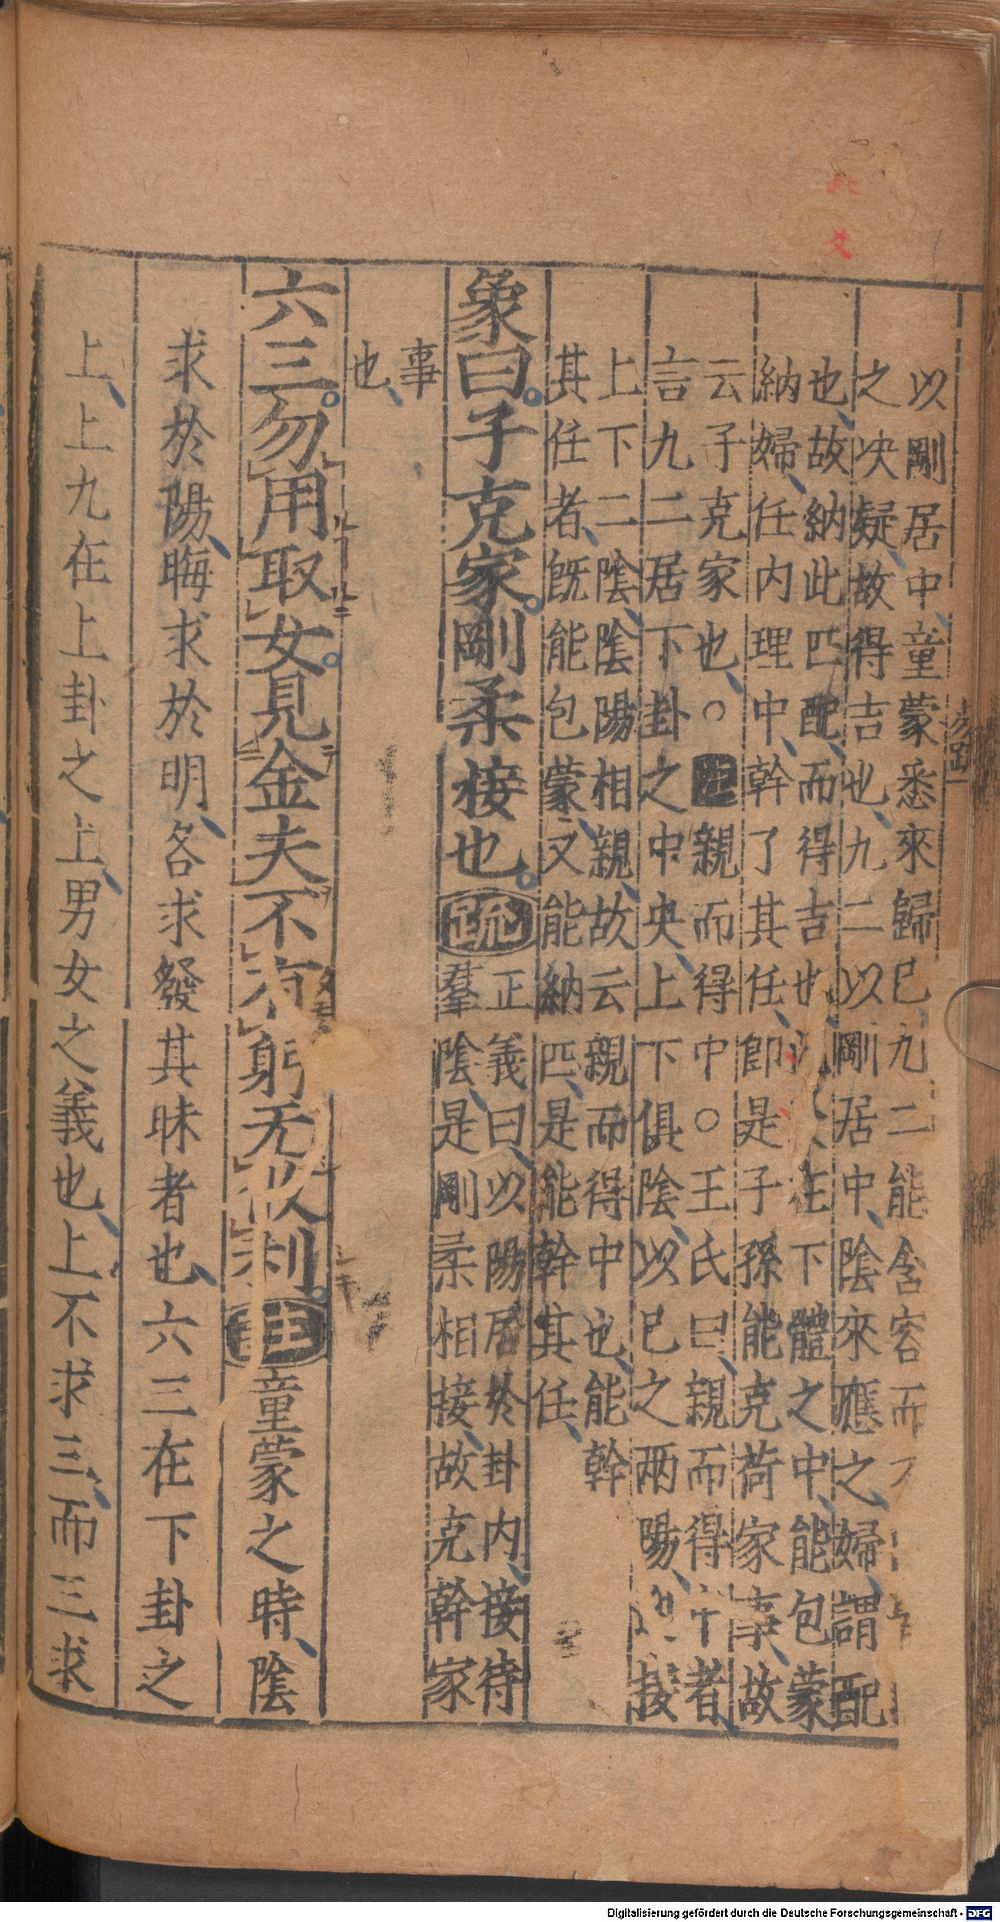 以剛居中、童蒙悉來歸巳、九二能含容而
之決疑、故得吉也、九二以剛居中、陰來應之婦、謂配
也、故納此匹配、而得吉也在下體之中、能包蒙
納婦、任内理中、幹了其任、即是子孫能克荷家事、故
云子克家也、○親而得中○王氏曰、親而得中者、
言九二居下卦之中央、上下俱陰、以巳之兩陽、接
上下二陰、陰陽相親、故云親而得中也、能幹
其任者、旣能包蒙、又能納匹、是能幹其任、
象曰。子克家。剛柔接也。疏
正義曰、以陽居於卦内、接待
羣陰、是剛柔相接、故克幹家
事
也、
六三。勿用取女。見金夫不有躬无攸利。註童蒙之時、陰
求於陽、晦求於明、各求發其昧者也、六三在下卦之
上、上九在上卦之上、男女之義也、上不求三、而三求
此
爻
Digitalisierung gefördert durch die Deutsche Forschungsgemeinschaft - DFG